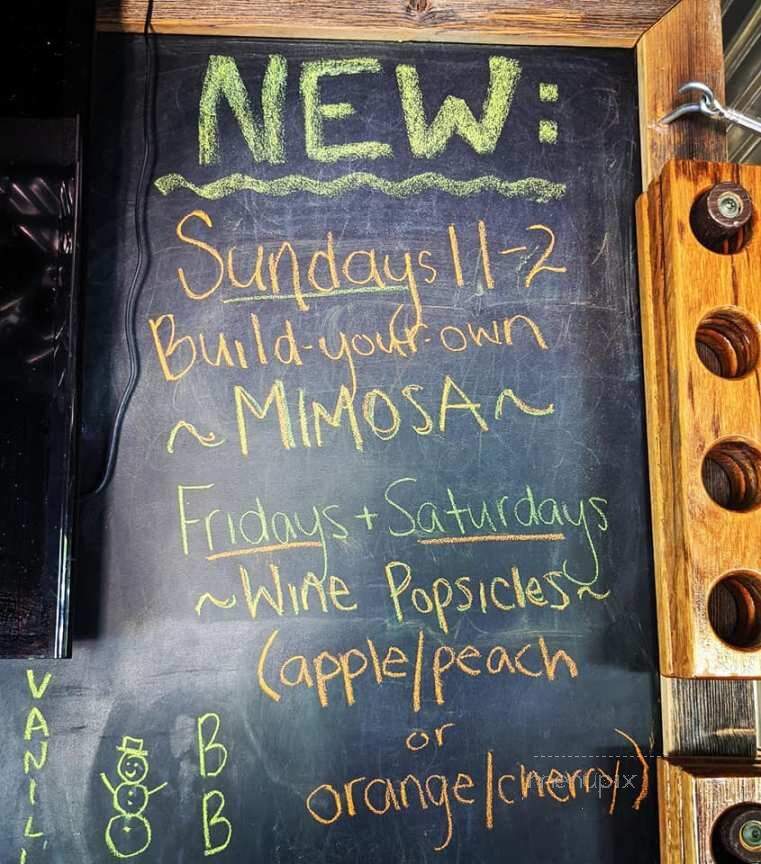 NEW:
Sundays 11-2
Build-your-own
~MIMOSA~
Fridays + Saturdays
~Wine Popsicles~
(apple/peach
or
orange/cherry)
menupix
VANIL
B
B